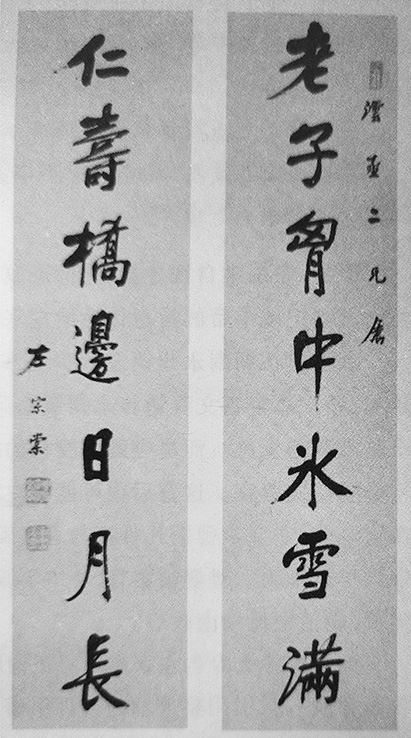 老子胷中氷雪滿
二兄屬
仁壽橋邊日月長
左宗棠